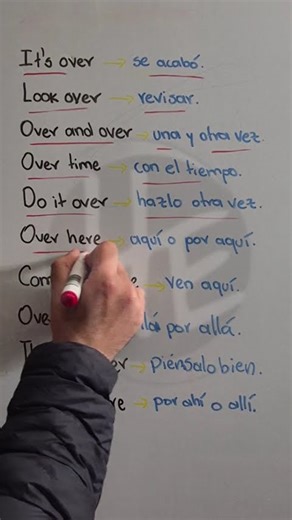 It's over → se acabó.
Look over → revisar.
Over and over → una y otra vez.
Over time → con el tiempo.
Do it over → hazlo otra vez.
Over here → aquí o por aquí.
→ ven aquí.
por allá.
→ piénsalo bien.
→ por ahí o allí.